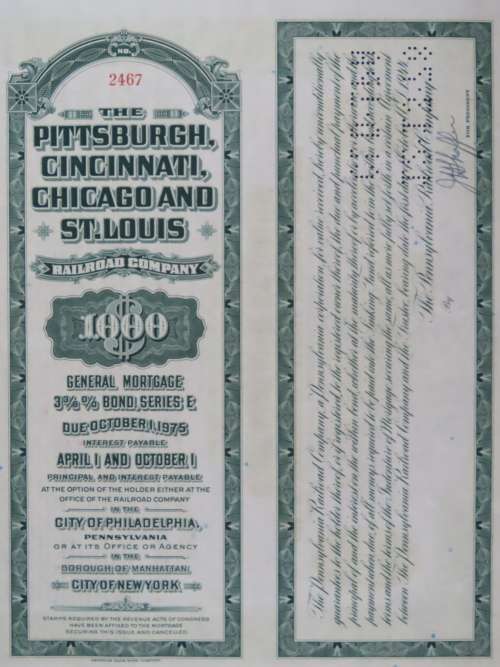 NO.
2467
THE
PITTSBURGH,
CINCINNATI,
CHICAGO AND
ST. LOUIS
RAILROAD COMPANY
1000
GENERAL MORTGAGE
3⅜% BOND, SERIES E
DUE OCTOBER 1, 1975
INTEREST PAYABLE
APRIL 1 AND OCTOBER 1
PRINCIPAL AND INTEREST PAYABLE
AT THE OPTION OF THE HOLDER EITHER AT THE
OFFICE OF THE RAILROAD COMPANY
IN THE
CITY OF PHILADELPHIA,
PENNSYLVANIA
OR AT ITS OFFICE OR AGENCY
IN THE
BOROUGH OF MANHATTAN,
CITY OF NEW YORK
STAMPS REQUIRED BY THE REVENUE ACTS OF CONGRESS
HAVE BEEN AFFIXED TO THE MORTGAGE
SECURING THIS ISSUE AND CANCELLED.
AMERICAN BANK NOTE COMPANY.
The Pennsylvania Railroad Company, a Pennsylvania corporation, for value received, hereby unconditionally
guarantees to the holder hereof, or if registered, to the registered owner thereof, the due and punctual payment of the
principal of and the interest on the within bond, whether at the maturity thereof or by acceleration or otherwise, and the
payment when due, of all moneys required to be paid into the Sinking Fund referred to in the within bond under the
terms and provisions of the Indenture of Mortgage securing the same, all as more fully set forth in a certain Agreement
between The Pennsylvania Railroad Company and the Trustee, bearing date the first day of
The Pennsylvania Railroad Company
By
FOR PRESIDENT